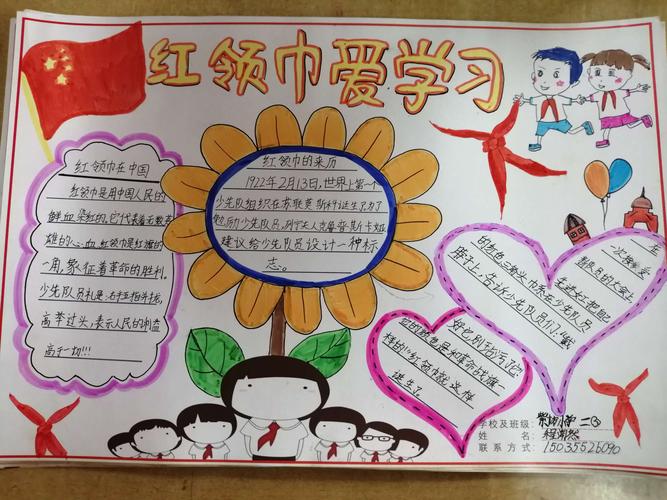 红领巾爱学习
红领巾在中国
红领巾是用中国人民的
鲜血染红的,它代表着无数英
雄的心血。红领巾是红旗的
一角,象征着革命的胜利。
少先队员礼是:右手五指并拢,
高举过头,表示人民的利益
高于一切!!!
红领巾的来历
1922年2月13日,世界上第一个
少先队组织在苏联莫斯科诞生,为了
鼓励少先队员,列宁夫人克鲁普斯卡娅
建议给少先队员设计一种标
志。
在
一次接受
新队员的大会上,
先进女工把自己
的红色三角头巾系在少先队员
脖子上,告诉少先队员们:"戴
好它,别玷污了它,
它的颜色是和革命战旗一
样的"红领巾就这样
诞生了
学校及班级:
二
姓 名:
联系方式:15035526090